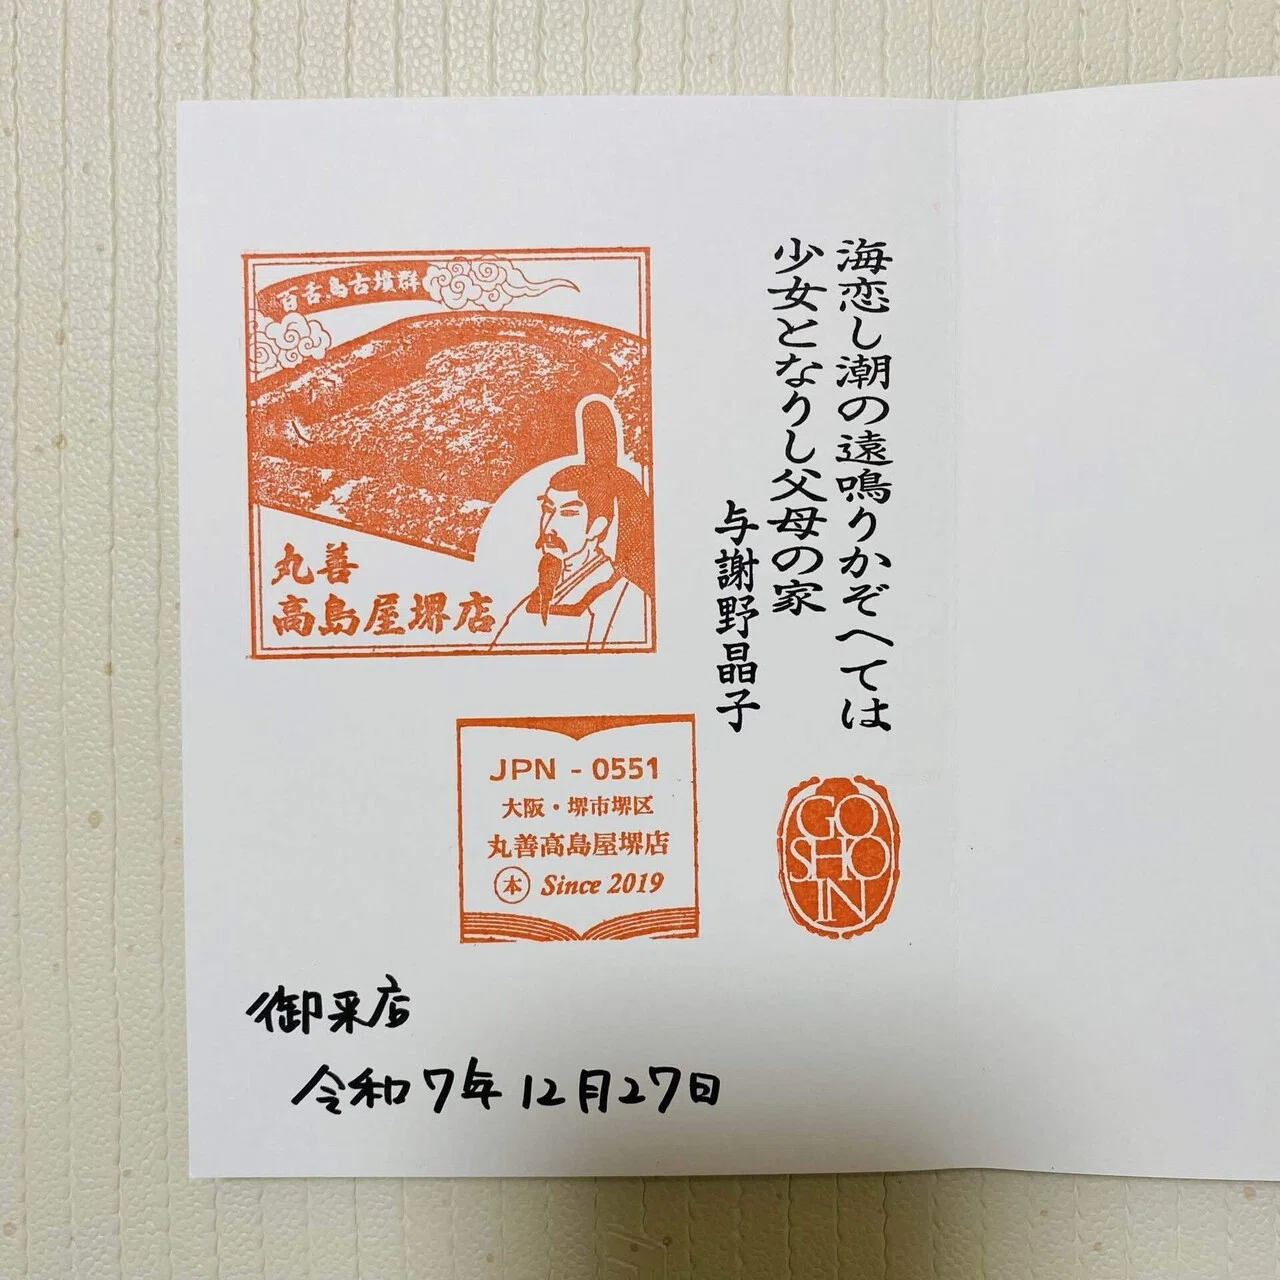 海恋し潮の遠鳴りかぞへては
少女となりし父母の家
与謝野晶子
百舌鳥古墳群
丸善
高島屋堺店
JPN - 0551
大阪・堺市堺区
丸善高島屋堺店
本 Since 2019
GO
SHO
IN
御来店
令和7年12月27日